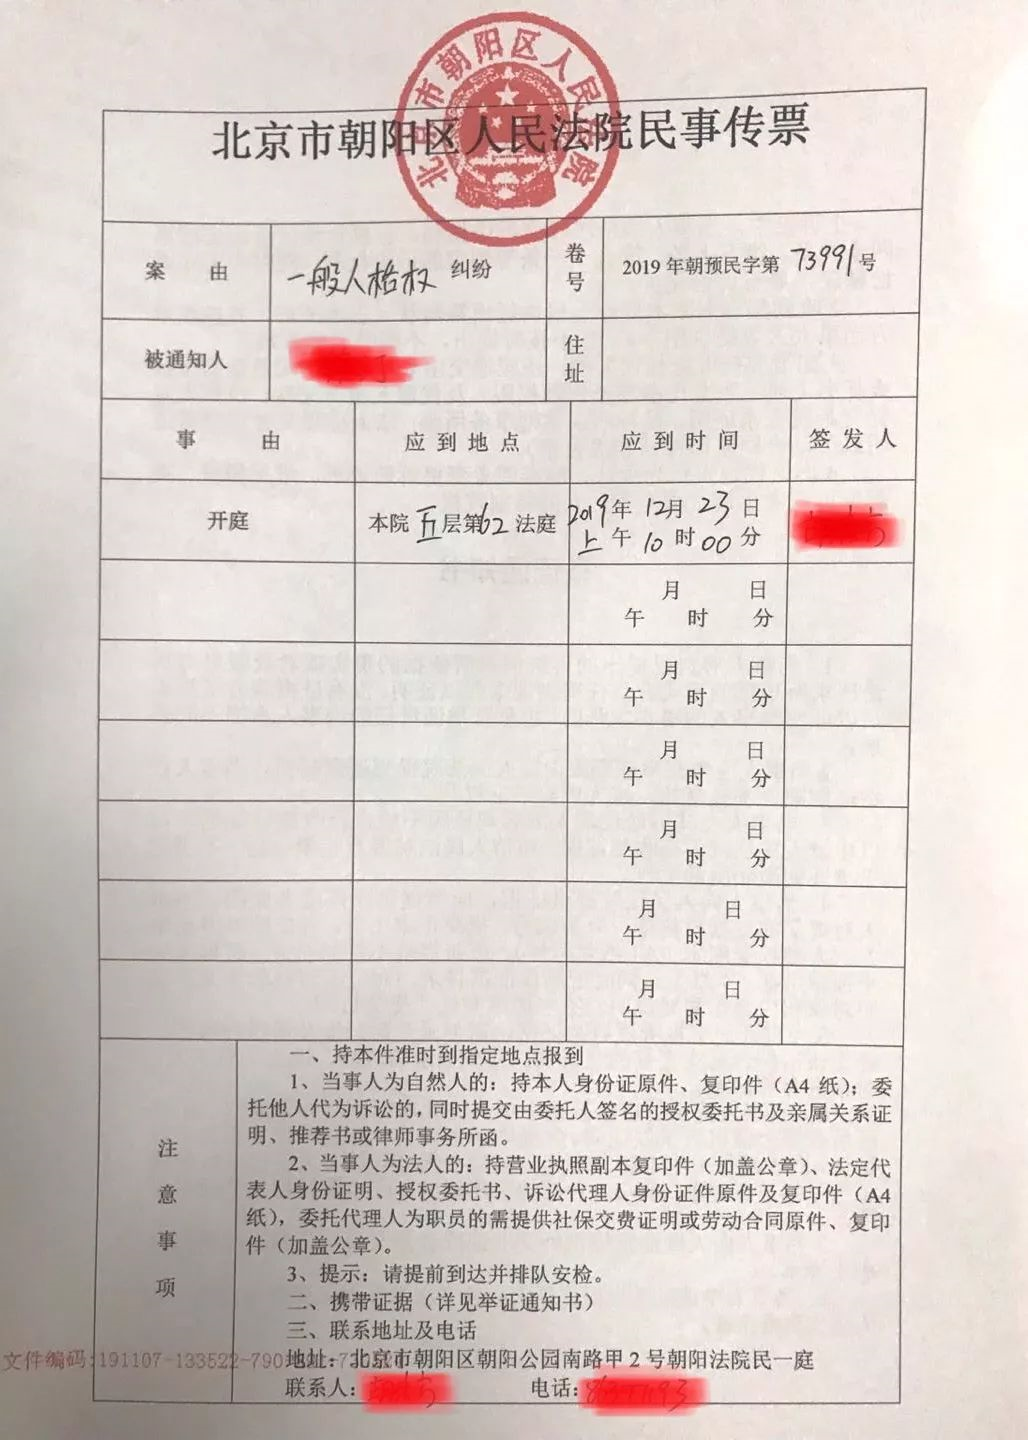 北京市朝阳区人民法院
北京市朝阳区人民法院民事传票
案 由 一般人格权 纠纷 卷号 2019 年朝预民字第 73991 号
被通知人 住址
事 由 应到地点 应到时间 签发人
开庭 本院 五 层第 62 法庭 2019 年 12 月 23 日
上 午 10 时 00 分
月 日
午 时 分
月 日
午 时 分
月 日
午 时 分
月 日
午 时 分
月 日
午 时 分
月 日
午 时 分
注意事项
一、持本件准时到指定地点报到
1、当事人为自然人的：持本人身份证原件、复印件（A4 纸）；委
托他人代为诉讼的，同时提交由委托人签名的授权委托书及亲属关系证
明、推荐书或律师事务所函。
2、当事人为法人的：持营业执照副本复印件（加盖公章）、法定代
表人身份证明、授权委托书、诉讼代理人身份证件原件及复印件（A4
纸），委托代理人为职员的需提供社保交费证明或劳动合同原件、复印
件（加盖公章）。
3、提示：请提前到达并排队安检。
二、携带证据（详见举证通知书）
三、联系地址及电话
文件编码:191107-133522-790
地址：北京市朝阳区朝阳公园南路甲 2 号朝阳法院民一庭
联系人： 电话：